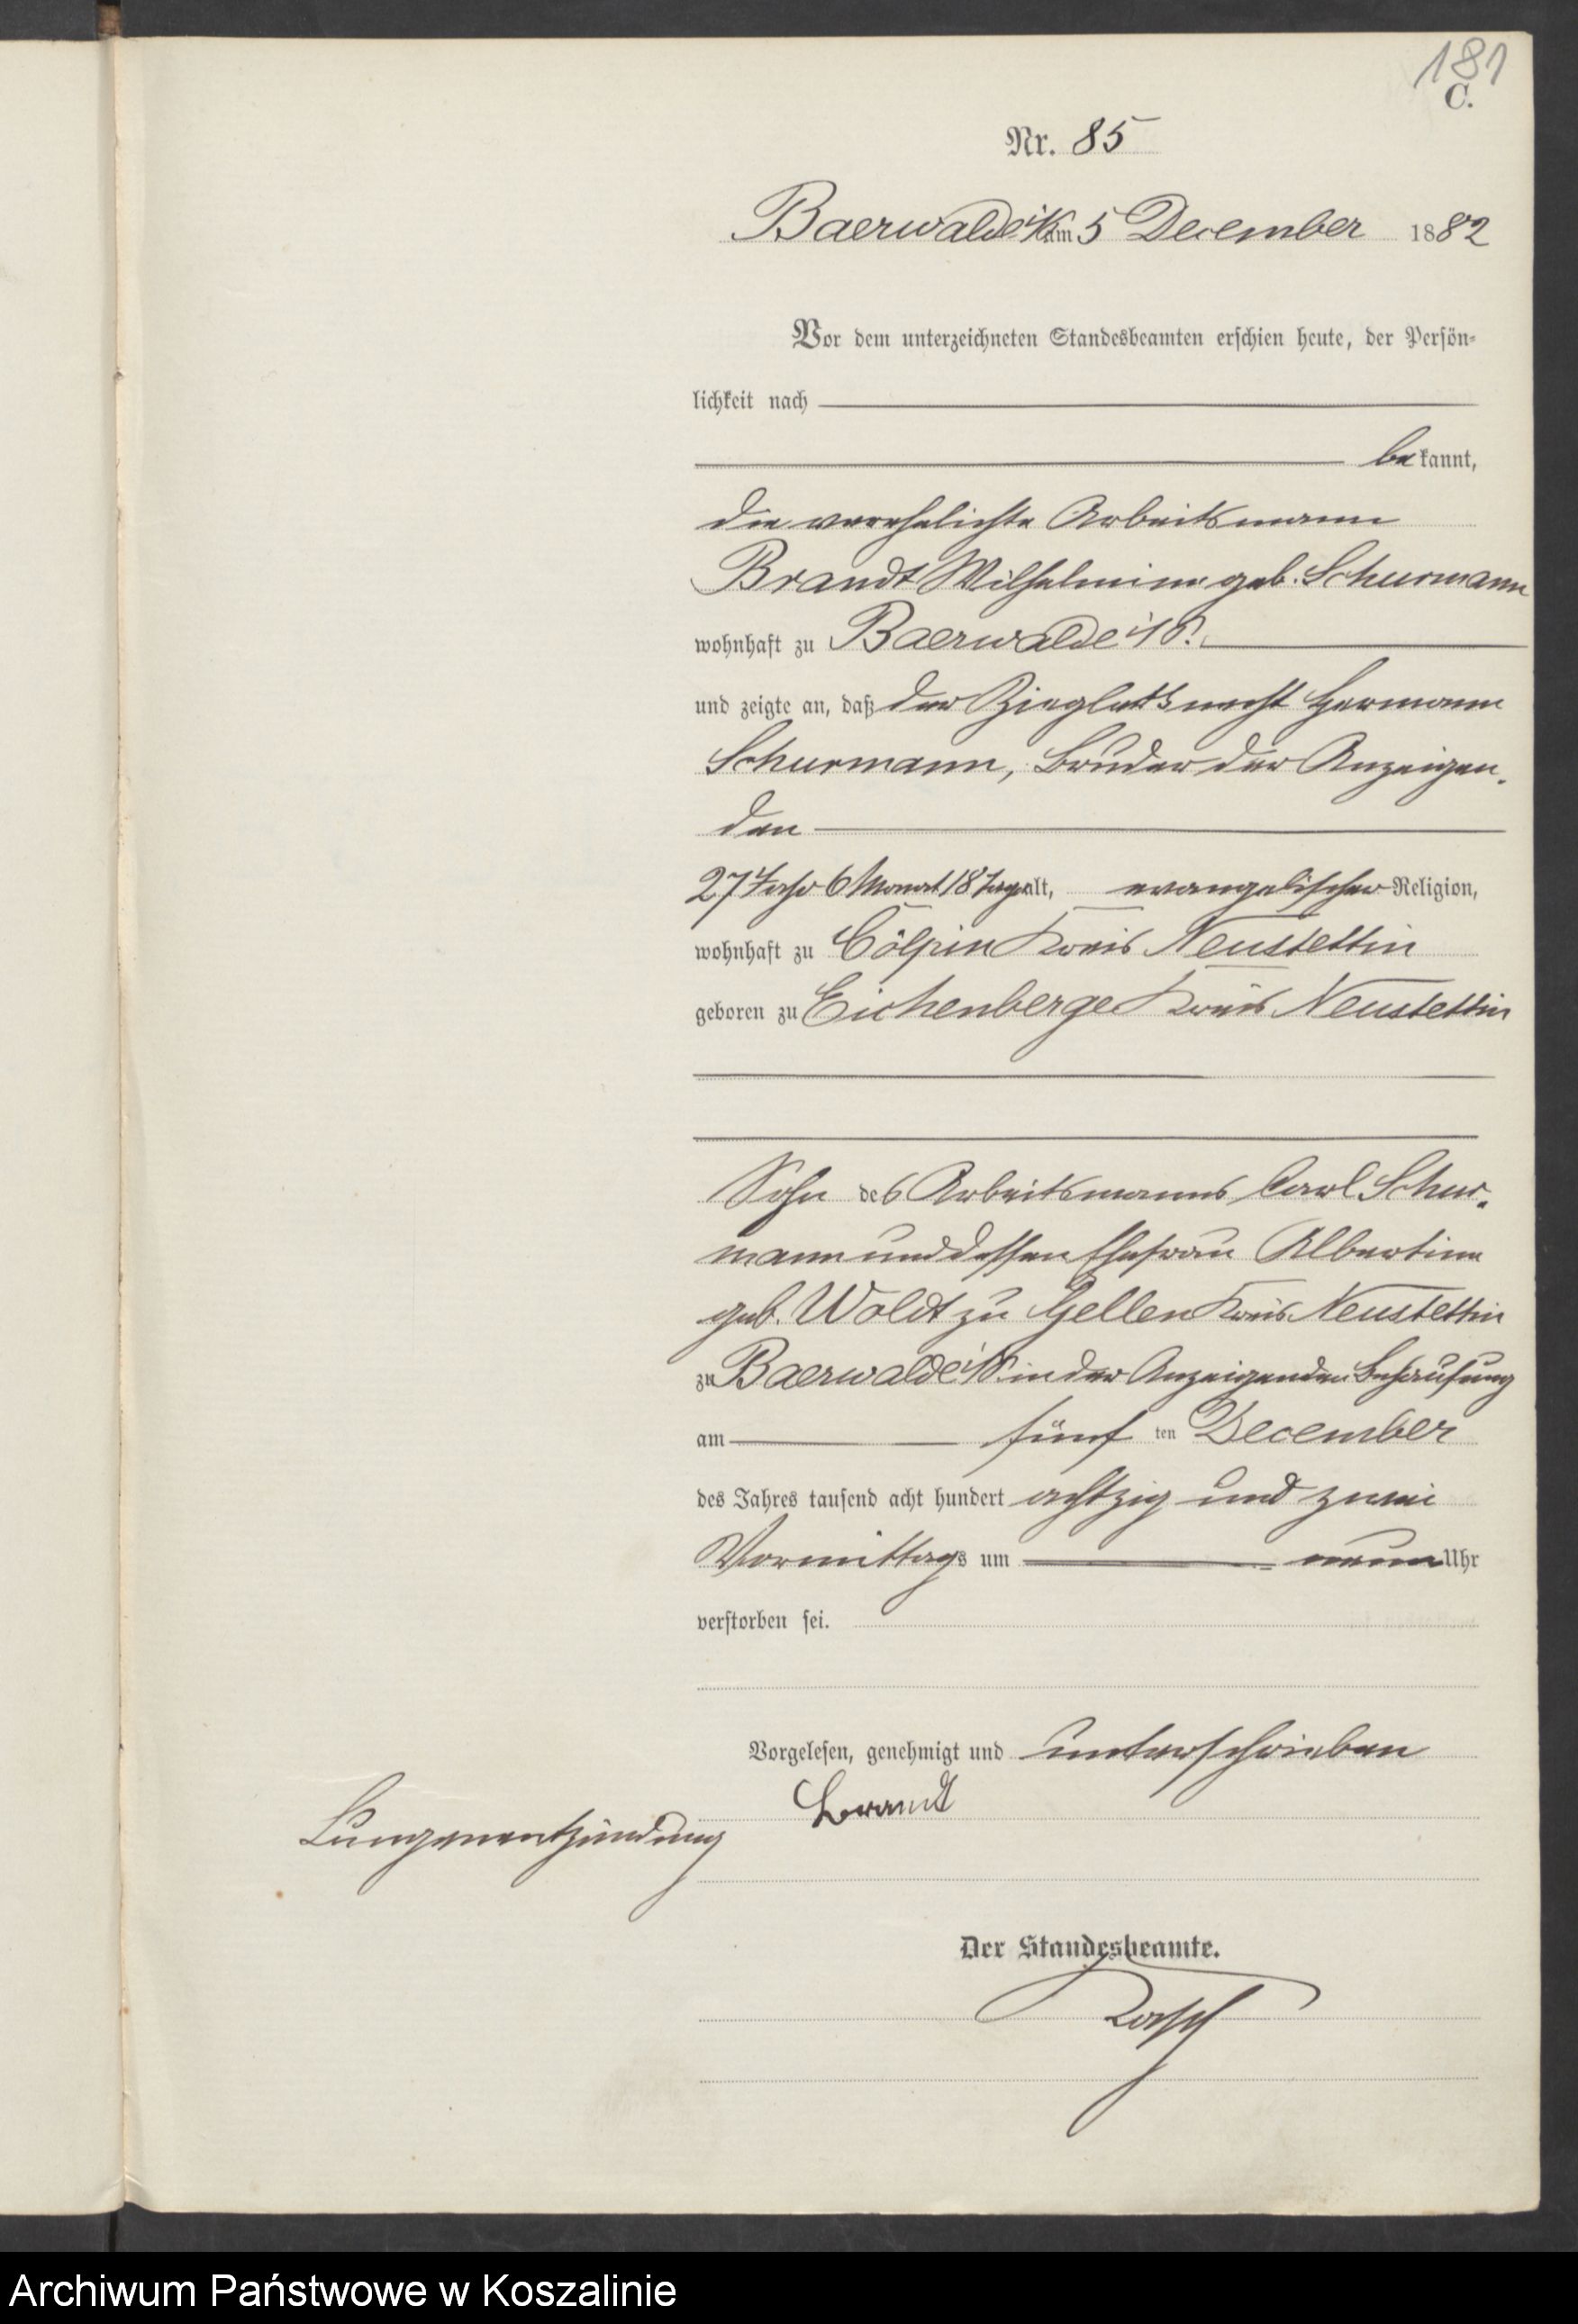 181
C.
Nr. 85
Baerwalde i/P. am 5 December 1882
Vor dem unterzeichneten Standesbeamten erschien heute, der Persön-
lichkeit nach
bekannt,
die verehelichte Arbeitsmann
Brandt Wilhelmine geb. Schurmann
wohnhaft zu Baerwalde i/P.
und zeigte an, daß der Hermann
Schurmann, Bruder der Anzeigen-
den
27 Jahr 6 Monat 18 Tage alt, evangelischer Religion,
wohnhaft zu Cölpin Kreis Neustettin
geboren zu Eichenberge Kreis Neustettin
Sohn des Arbeitsmanns Carl Schur-
mann und dessen Ehefrau Albertine
geb. Woldt zu Gellen Kreis Neustettin
zu Baerwalde i/P. in der Anzeigenden Behausung
am fünf ten December
des Jahres tausend acht hundert achtzig und zwei
Vormittags um neun Uhr
verstorben sei.
Vorgelesen, genehmigt und unterschrieben
Brandt
Lungenentzündung
Der Standesbeamte.
Archiwum Państwowe w Koszalinie